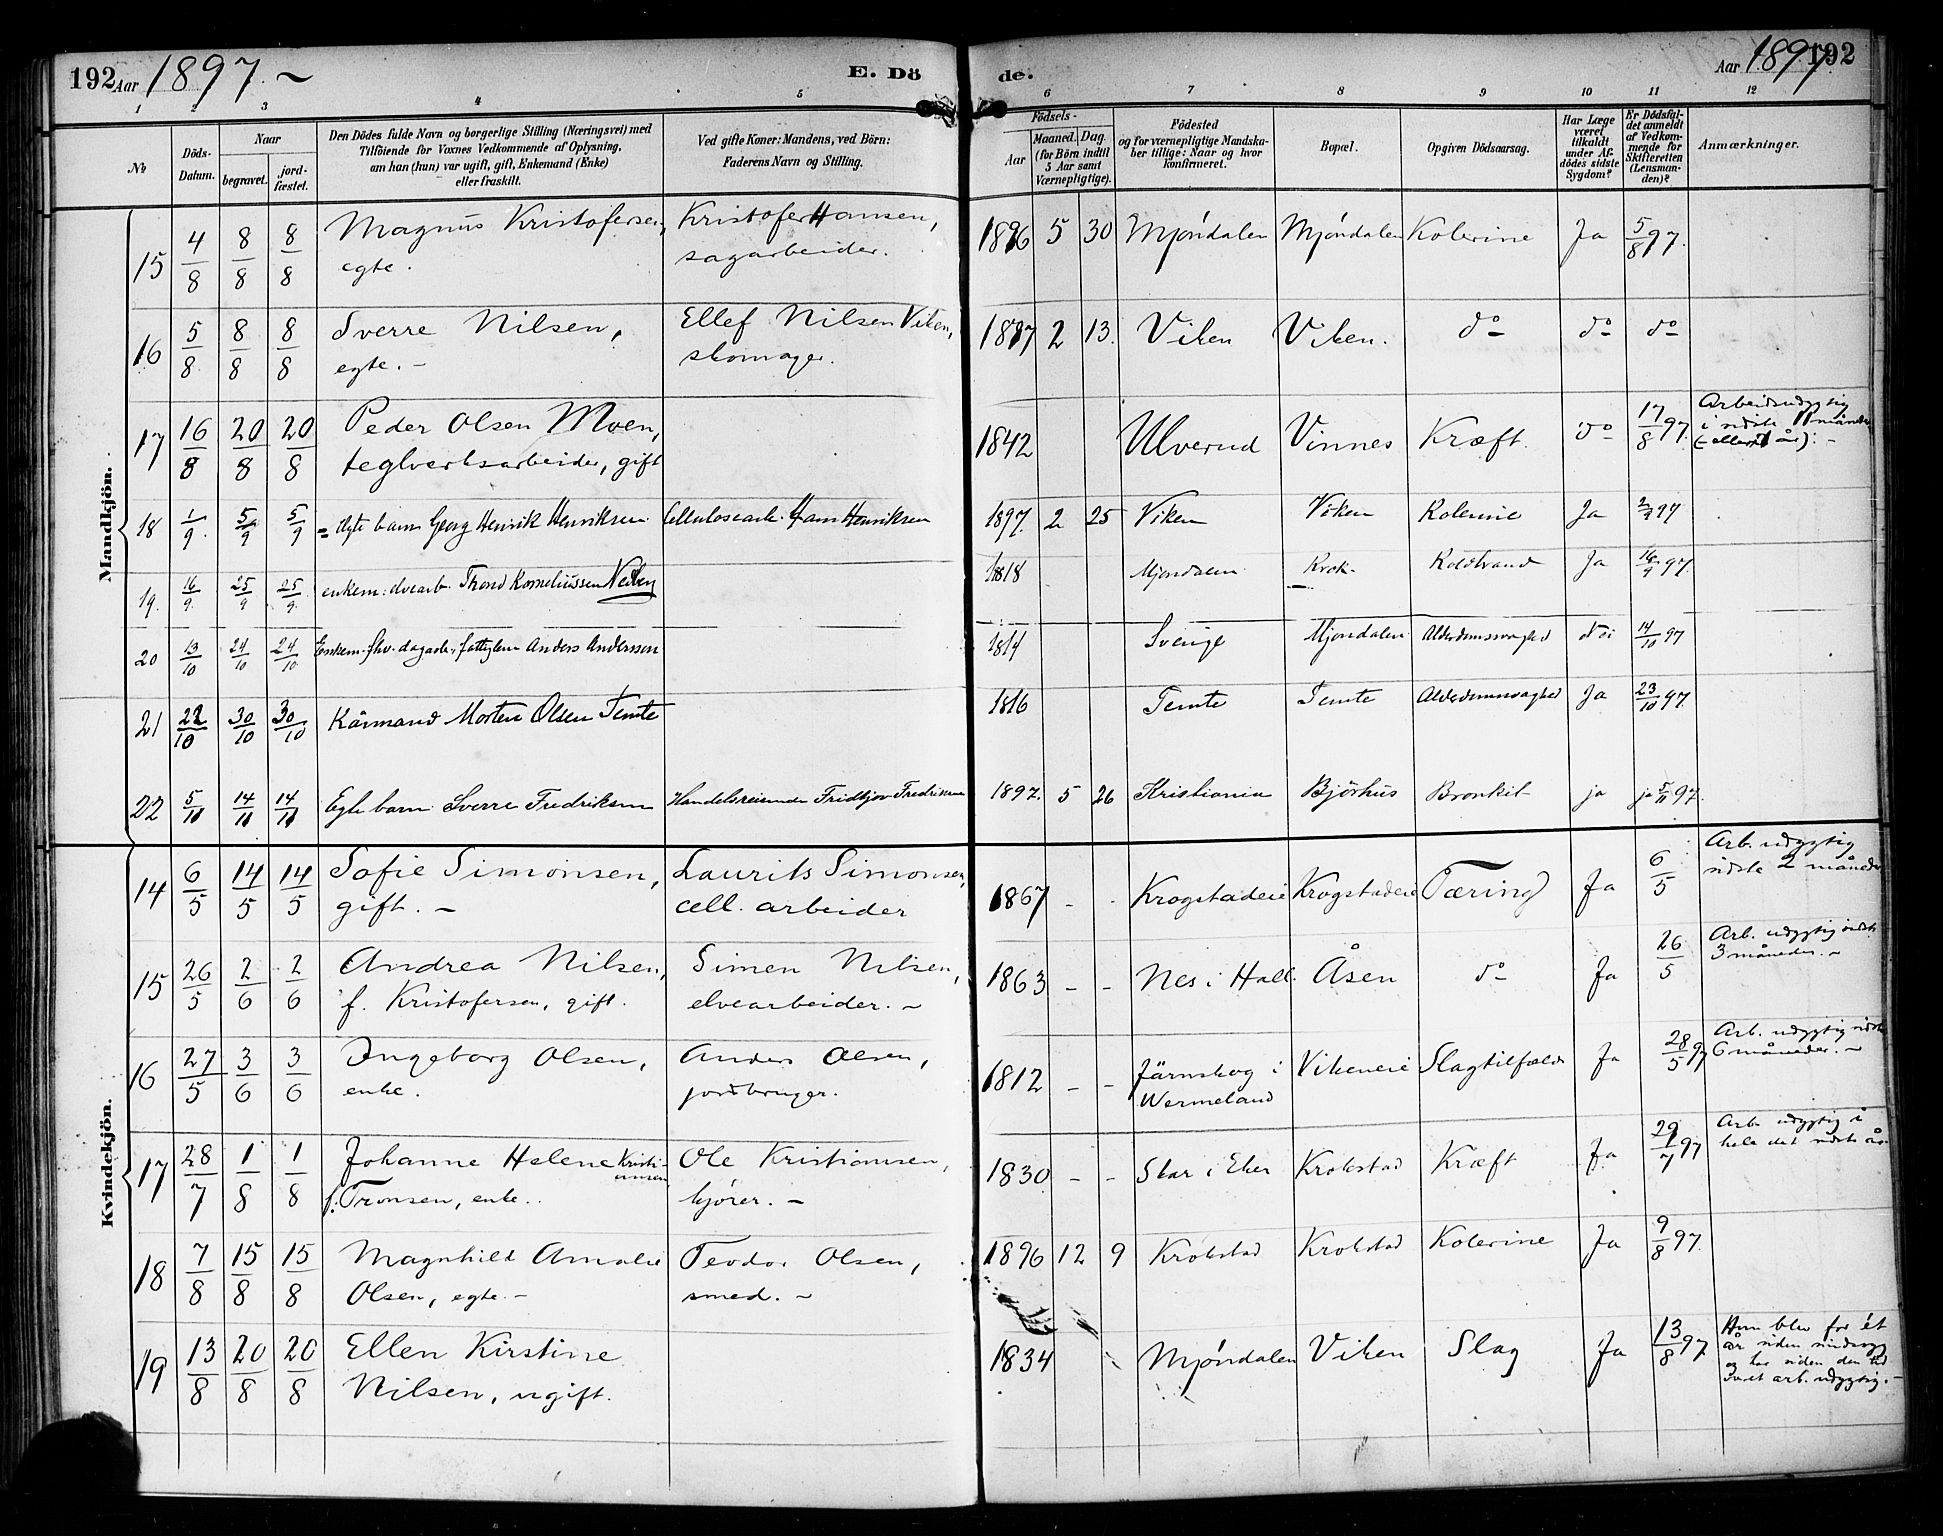 192 Aar 1897. ~ E. Dö de. Aar 1897. 192
1 2 3 4 5 6 7 8 9 10 11 12
No
Döds-Datum.
Naar
begravet. jordfæstet.
Den Dödes fulde Navn og borgerlige Stilling (Næringsvei) med
Tilföiende for Voxnes Vedkommende af Oplysning,
om han (hun) var ugift, gift, Enkemand (Enke)
eller fraskilt.
Ved gifte Koner: Mandens, ved Börn:
Faderens Navn og Stilling.
Födsels-
Aar Maaned. Dag.
(for Börn indtil
5 Aar samt
Værnepligtige).
Födested
og for værnepligtige Mandskaber tillige: Naar og hvor
konfirmeret.
Bopæl.
Opgiven Dödsaarsag.
Har Læge
været
tilkaldt
under Afdödes sidste
Sygdom?
Er Dödsfaldet anmeldt
af Vedkommende for
Skifteretten
(Lensmanden)?
Anmærkninger.
Mandkjön.
15 4/8 8/8 8/8 Magnus Kristofersen, Kristofer Hansen, 1896 5 30 Mjøndalen Mjøndalen Kolerine Ja 5/8 97.
egte. sagarbeider.
16 5/8 8/8 8/8 Sverre Nilsen, Ellef Nilsen Viken, 1897 2 13. Viken Viken. do do do
egte. - skomager.
17 16/8 20/8 20/8 Peder Olsen Moen, 1842 Ulverud Vinnes Kræft. do 17/8 97. Arbeidsudygtig
teglverksarbeider, gift i sidste måneder
18 1/9. 5/9 5/9 = Egte barn Georg Henrik Henriksen Cellulosearb. Hans Henriksen 1897. 2 25 Viken Viken Kolerine Ja 2/9 97
19. 16/9. 25/9 25/9. enkem: elvearb. Trond Korneliussen 1818 Mjøndalen Krok. Koldbrand Ja 16/9 97.
20 13/10 24/10 24/10 Enkem. fhv. dagarb., fattiglem Anders Anderssen 1814 Sverige Mjøndalen Alderdomssvaghed Nei 14/10 97
21 22/10 30/10 30/10 Kårmand Morten Olsen Temte 1816 Temte Temte Alderdomssvaghed Ja 23/10 97.
22 5/11 14/11 14/11 Egte barn Sverre Fredriksen Handelsreisende Fridtjov Fredriksen 1897. 5 26 Kristiania Bjørhus Bronkit ja ja 5/11 97.
Kvindekjön.
14 6/5 14/5 14/5 Sofie Simonsen, Laurits Simonsen, 1867 - - Krogstadeie Krogstadeie Tæring Ja 6/5 Arb. udygtig
gift. - cell. arbeider sidste 2 måneder
15 26/5 2/6 2/6 Andrea Nilsen, Simen Nilsen, 1863 - - Nes i Hall. Åsen do Ja 26/5 Arb. udygtig sidste
f. Kristofersen, gift. elvearbeider. ~ 3 måneder. ~
16 27/5 3/6 3/6 Ingeborg Olsen, Anders Olsen, 1812 - - Järnskog i Vikeneie Slagtilfælde Ja 28/5 97 Arb. udygtig sidste
enke. jordbruger. Wermeland 6 måneder. ~
17 28/7 1/8 1/8 Johanne Helene Kristiansen Ole Kristiansen, 1830 - - Skar i Eker Krokstad Kræft Ja 29/7 97 Arb. udygtig i
f. Tronsen, enke. kjører. - hele det sidste år
18 7/8 15/8 15/8 Magnhild Amalie Teodor Olsen, 1896 12 9 Krokstad Krokstad Kolerine Ja 9/8 97.
Olsen, egte. - smed. ~
19 13/8 20/8 20/8 Ellen Kirstine 1834 Mjøndalen Viken Slag Ja 13/8 97 Hun blev for ét
Nilsen, ugift. år siden
og har siden den tid
været arb. udygtig. -